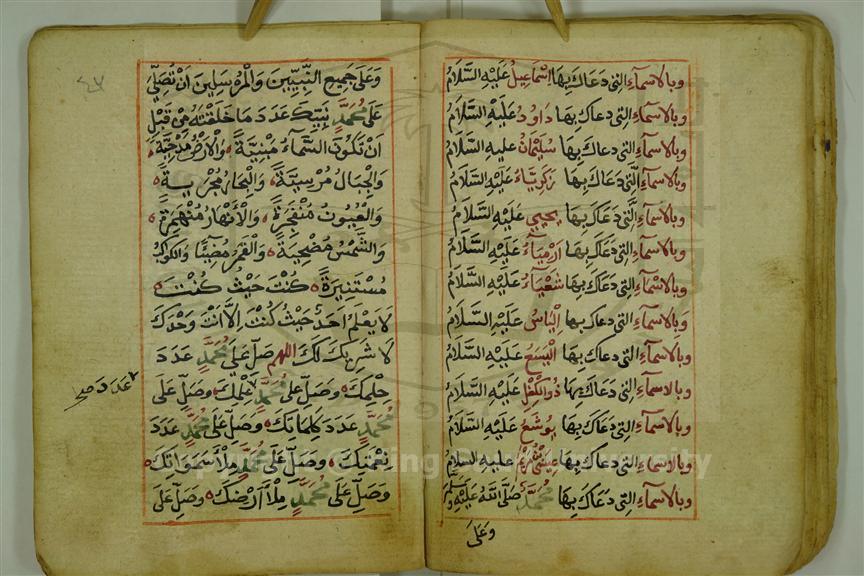 وبالاسمآء التي دعاك بها اسماعيل عليه السلام
وبالاسمآء التي دعاك بها داود عليه السلام
وبالاسمآء التي دعاك بها سليمان عليه السلام
وبالاسمآء الَّتي دعاك بها زكريآء عليه السلام
وبالاسمآء الَّتي دعاك بها يحيي عليه السلام
وبالاسمآء التي دعاك بها ارميآء عليه السلام
وبالاسمآء التي دعاك بها شعيآء عليه السلام
وبالاسمآء التي دعاك بها الياس عليه السلام
وبالاسمآء التي دعاك بها اليسع عليه السلام
وبالاسمآء التي دعاك بها ذوالكفل عليه السلام
وبالاسمآء التي دعاك بها يوشع عليه السلام
وبالاسمآء التي دعاك بها عيسى بن مريم عليه السلام
وبالاسمآء التي دعاك بها محمد صلى الله عليه وسلم
وعلى
٤٧
وعلى جميع النبيين والمرسلين ان تصلي
على محمد نبيك عدد ما خلقته من قبل
ان تكون السمآء مبنية والارض مدحية
والجبال مرسية والبحار مجرية
والعيون منفجرة والأنهار منهمرة
والشمس مضحية والقمر مضيئا والكواكب
مستنيرة كنت حيث كنت
لا يعلم احد حيث كنت الا انت وحدك
لا شريك لك اللهم صل على محمد عدد
حلمك وصل على محمد علمك وصل على
عدد صح
محمد عدد كلماتك وصل على محمد عدد
نعمتك وصل على محمد ملأ سمواتك
وصل على محمد ملأ أرضك وصل على
University